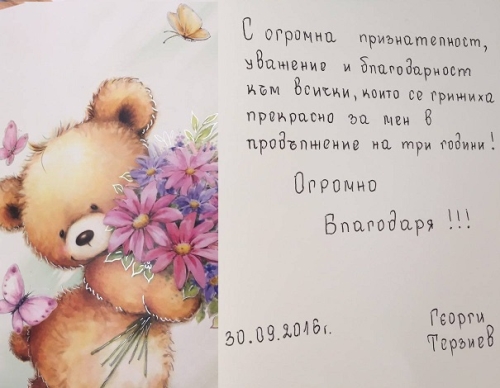 С огромна признателност,
уважение и благодарност
към всички, които се грижиха
прекрасно за мен в
продължение на три години!
Огромно
Благодаря !!!
30.09.2016г.
Георги
Терзиев